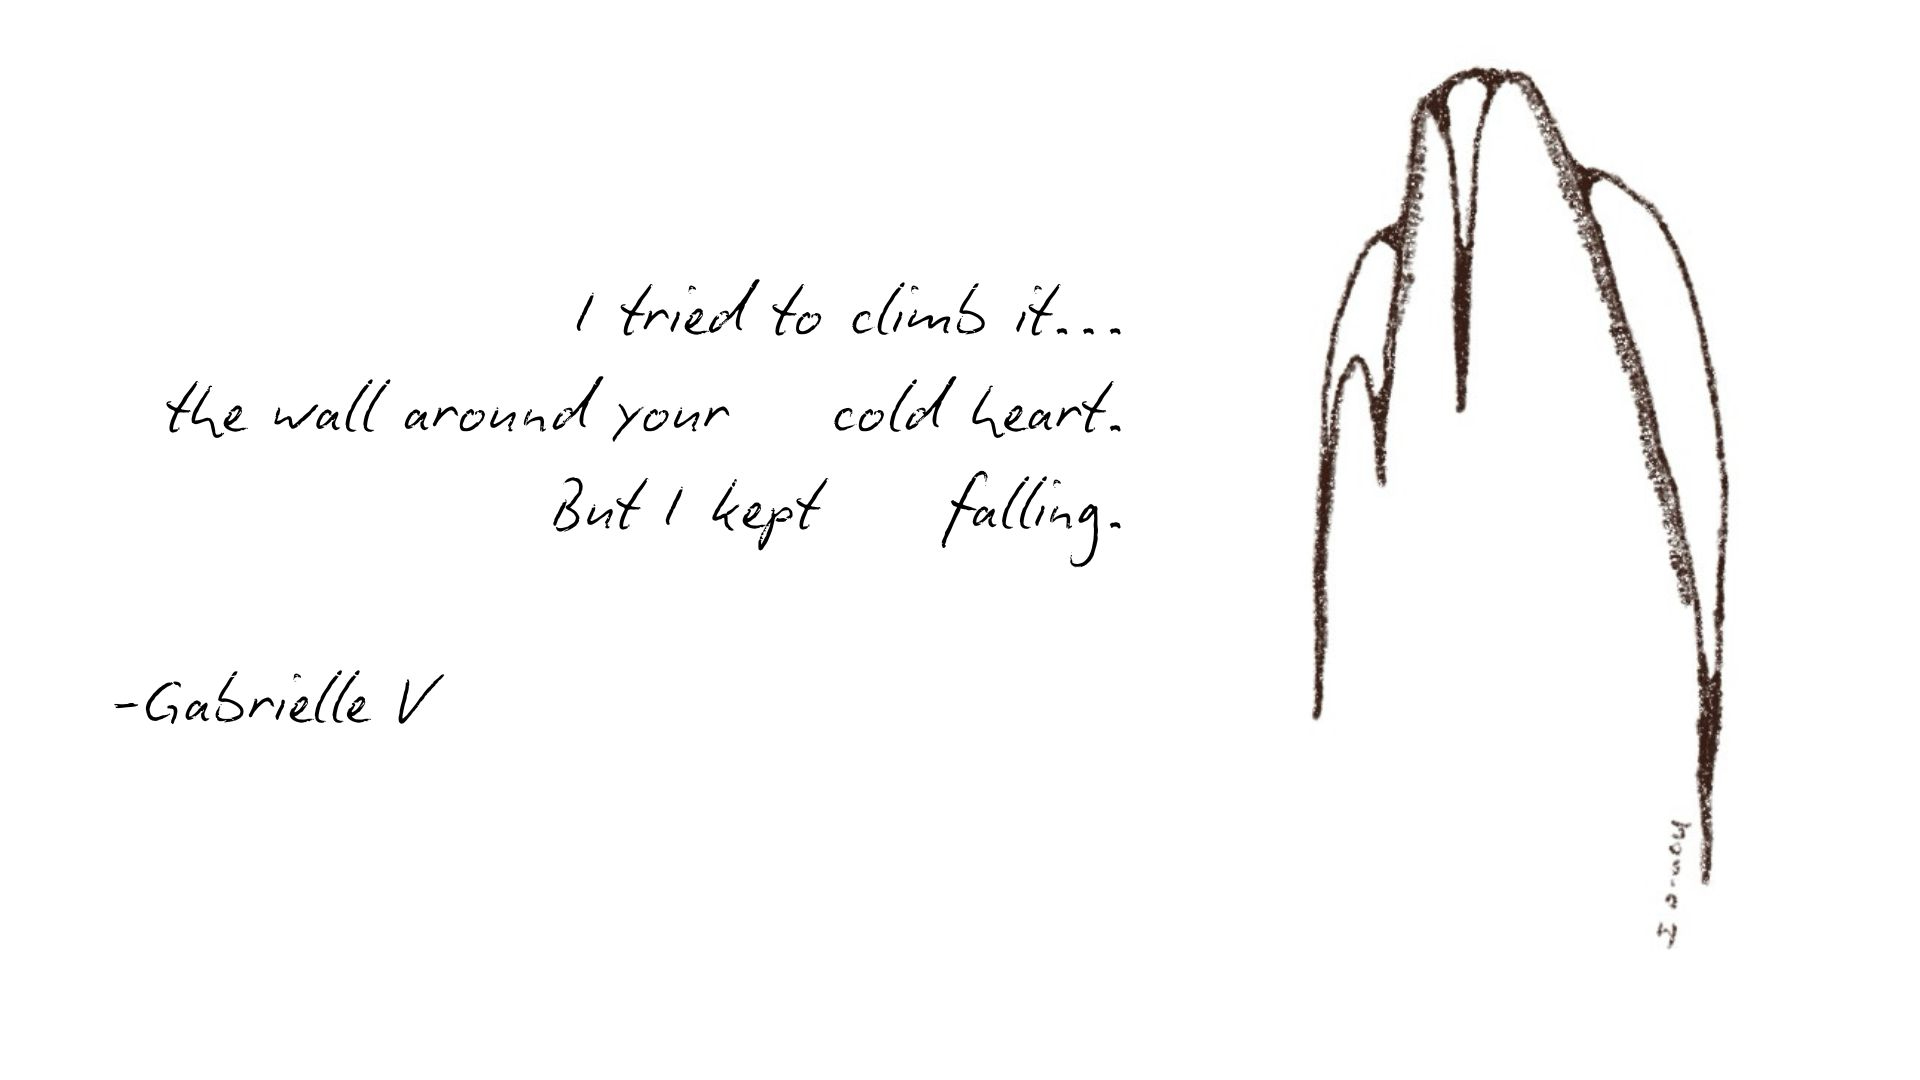 I tried to climb it...
the wall around your cold heart.
But I kept falling.
-Gabrielle V